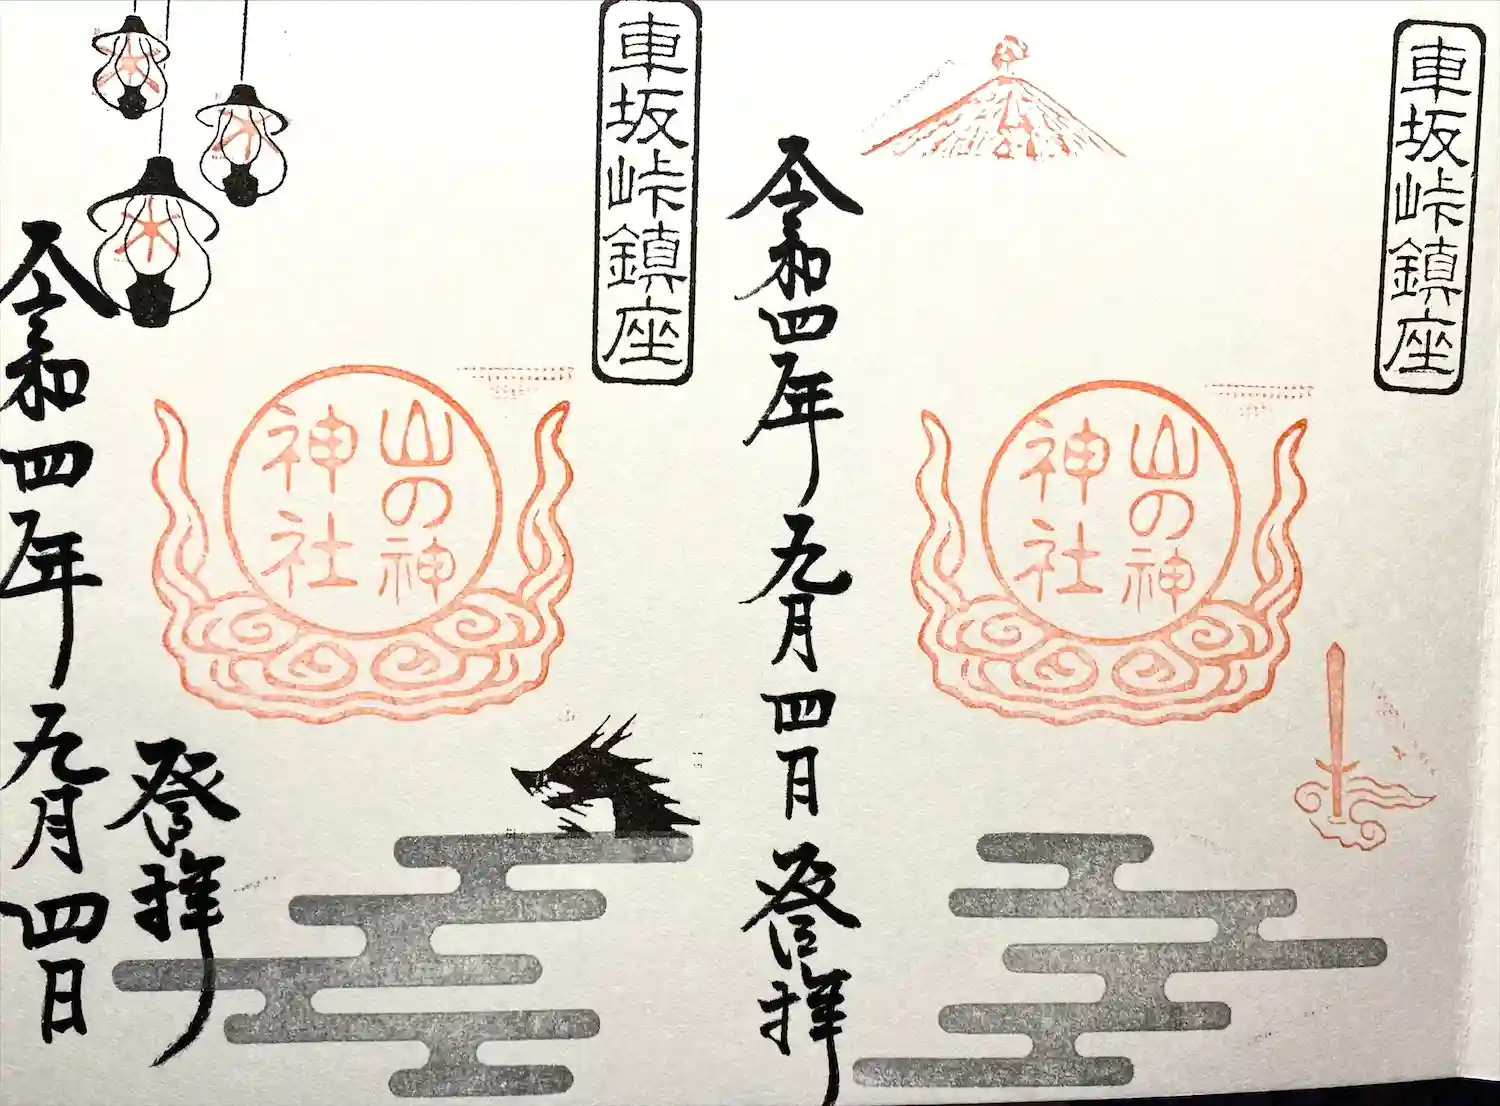 車坂峠鎮座
山の神
神社
令和四年九月四日 登拝
車坂峠鎮座
山の神
神社
登拝
令和四年九月四日